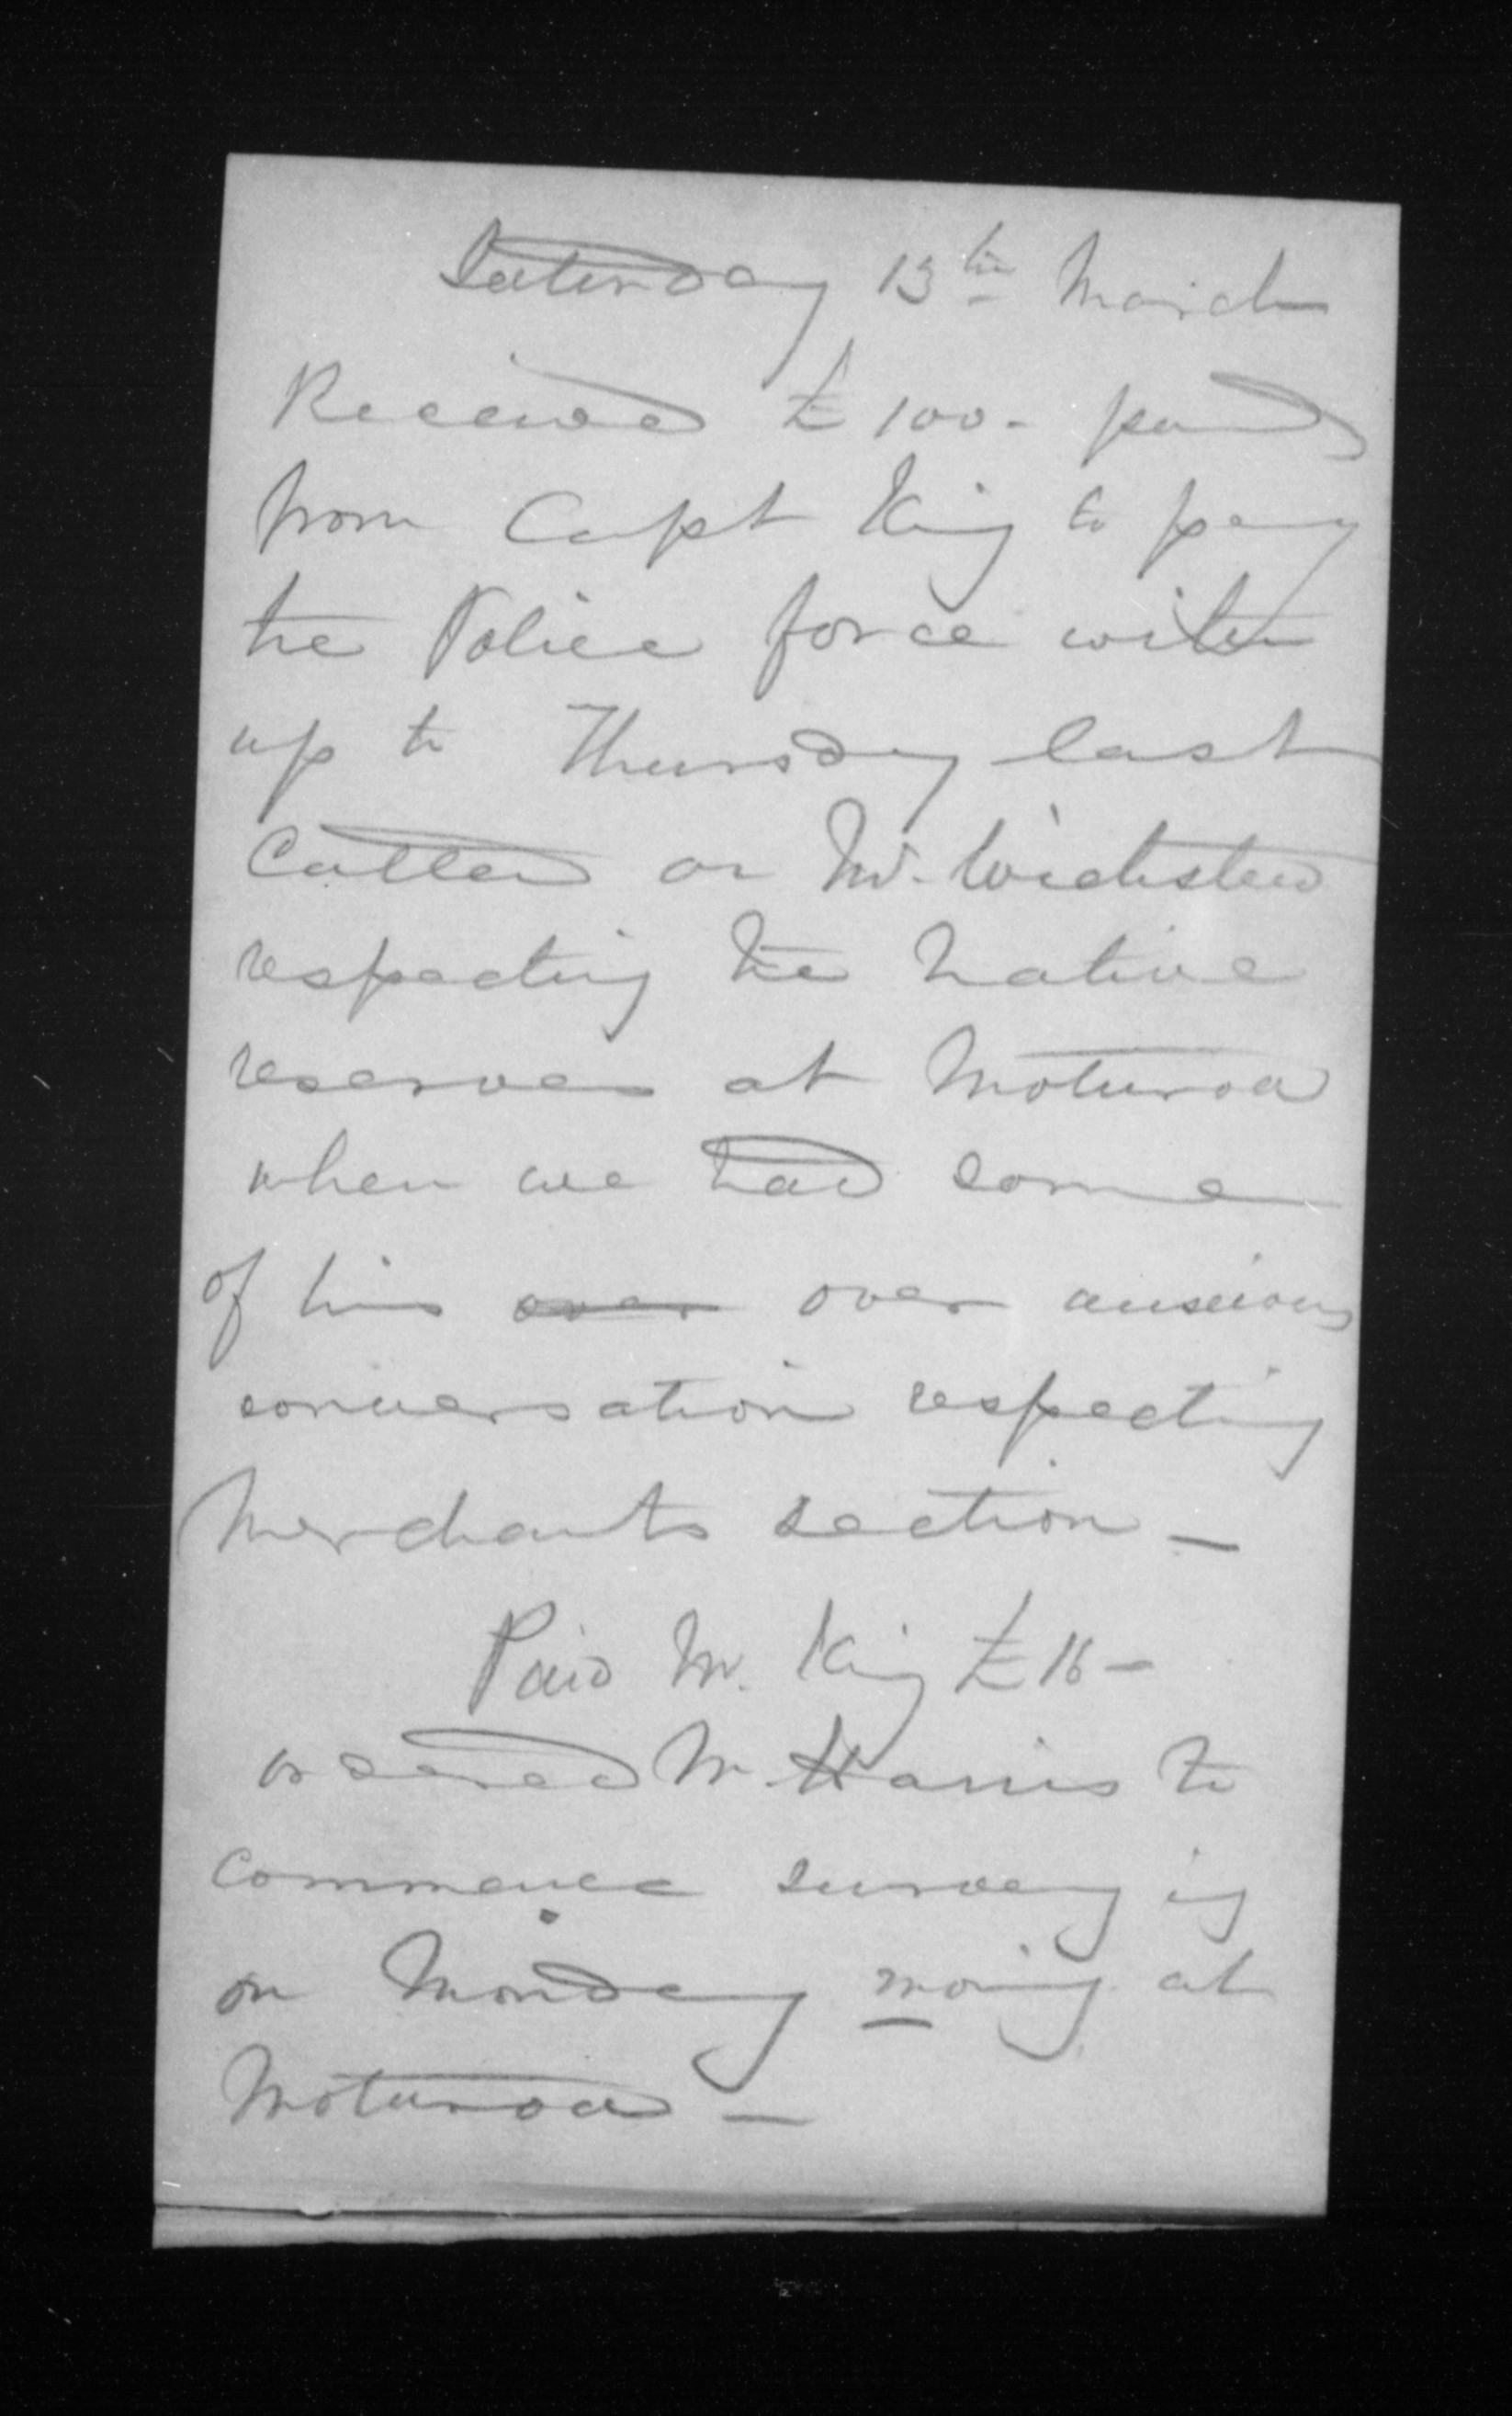 Saturday 13th March
Received £100 - pound
from Capt King to pay
the Police force with
up to Thursday last
Called on Mr. Wicksteed
respecting the Native
reserves at Moturoa
when we had some
of his over over anxious
conversation respecting
Merchants section -
Paid Mr. King £16 -
ordered Mr Harris to
commence surveying
on Monday morng at
Moturoa -